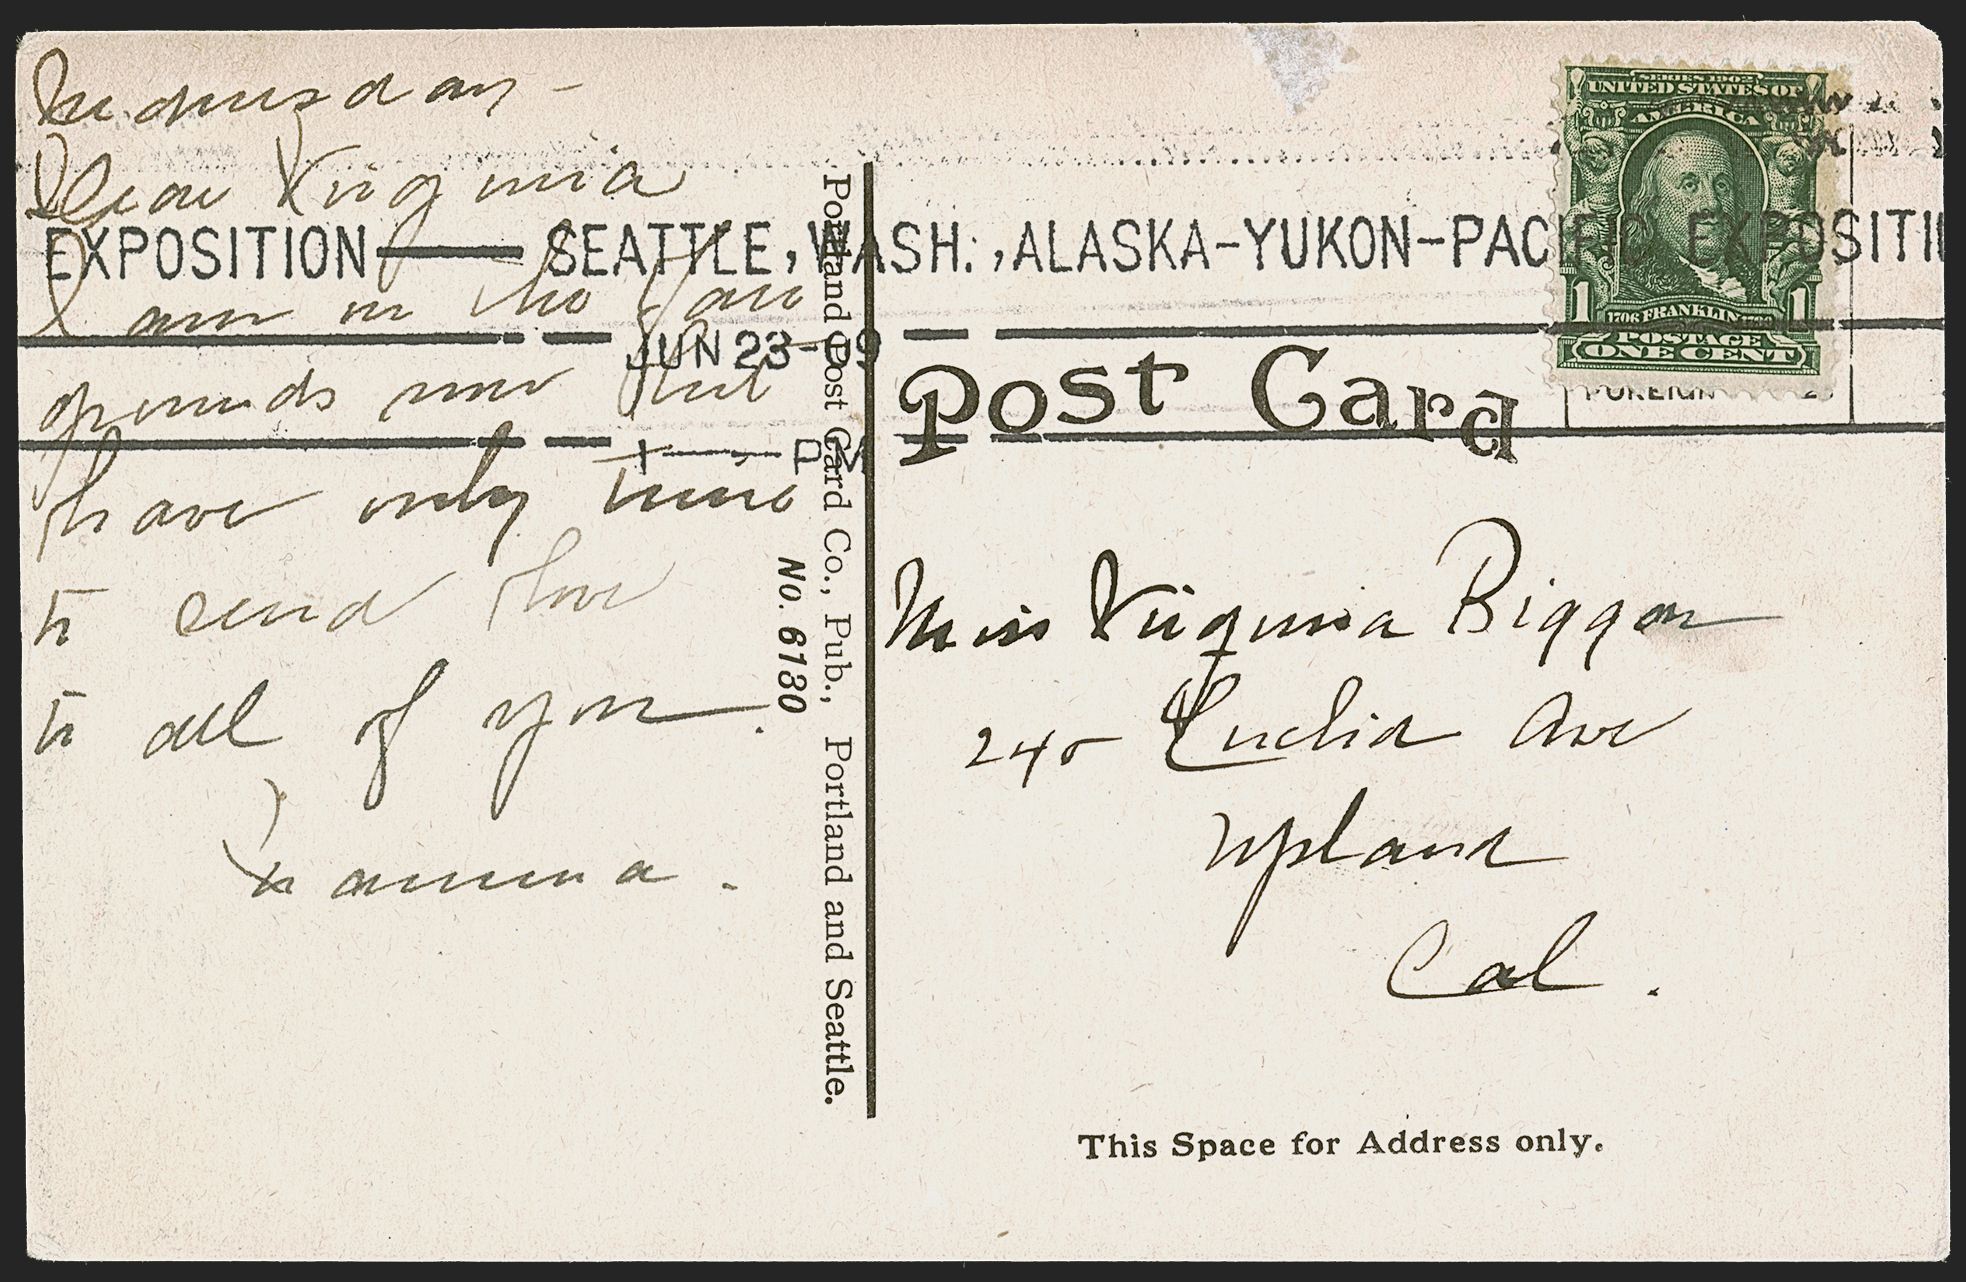 Wednesday -
Dear Virginia
I am in the Fair
grounds now but
have only time
to send love
to all of you.
Mamma.
EXPOSITION — SEATTLE, WASH., ALASKA-YUKON-PACIFIC EXPOSITI
JUN 23-09
1 — PM
Portland Post Card Co., Pub., Portland and Seattle.
No. 6130
Post Card
SERIES 1902
UNITED STATES OF
AMERICA
1706 FRANKLIN 1790
1 1
POSTAGE
ONE CENT
FOREIGN 2
Miss Virginia Biggar
245 Euclid Ave
Upland
Cal.
This Space for Address only.